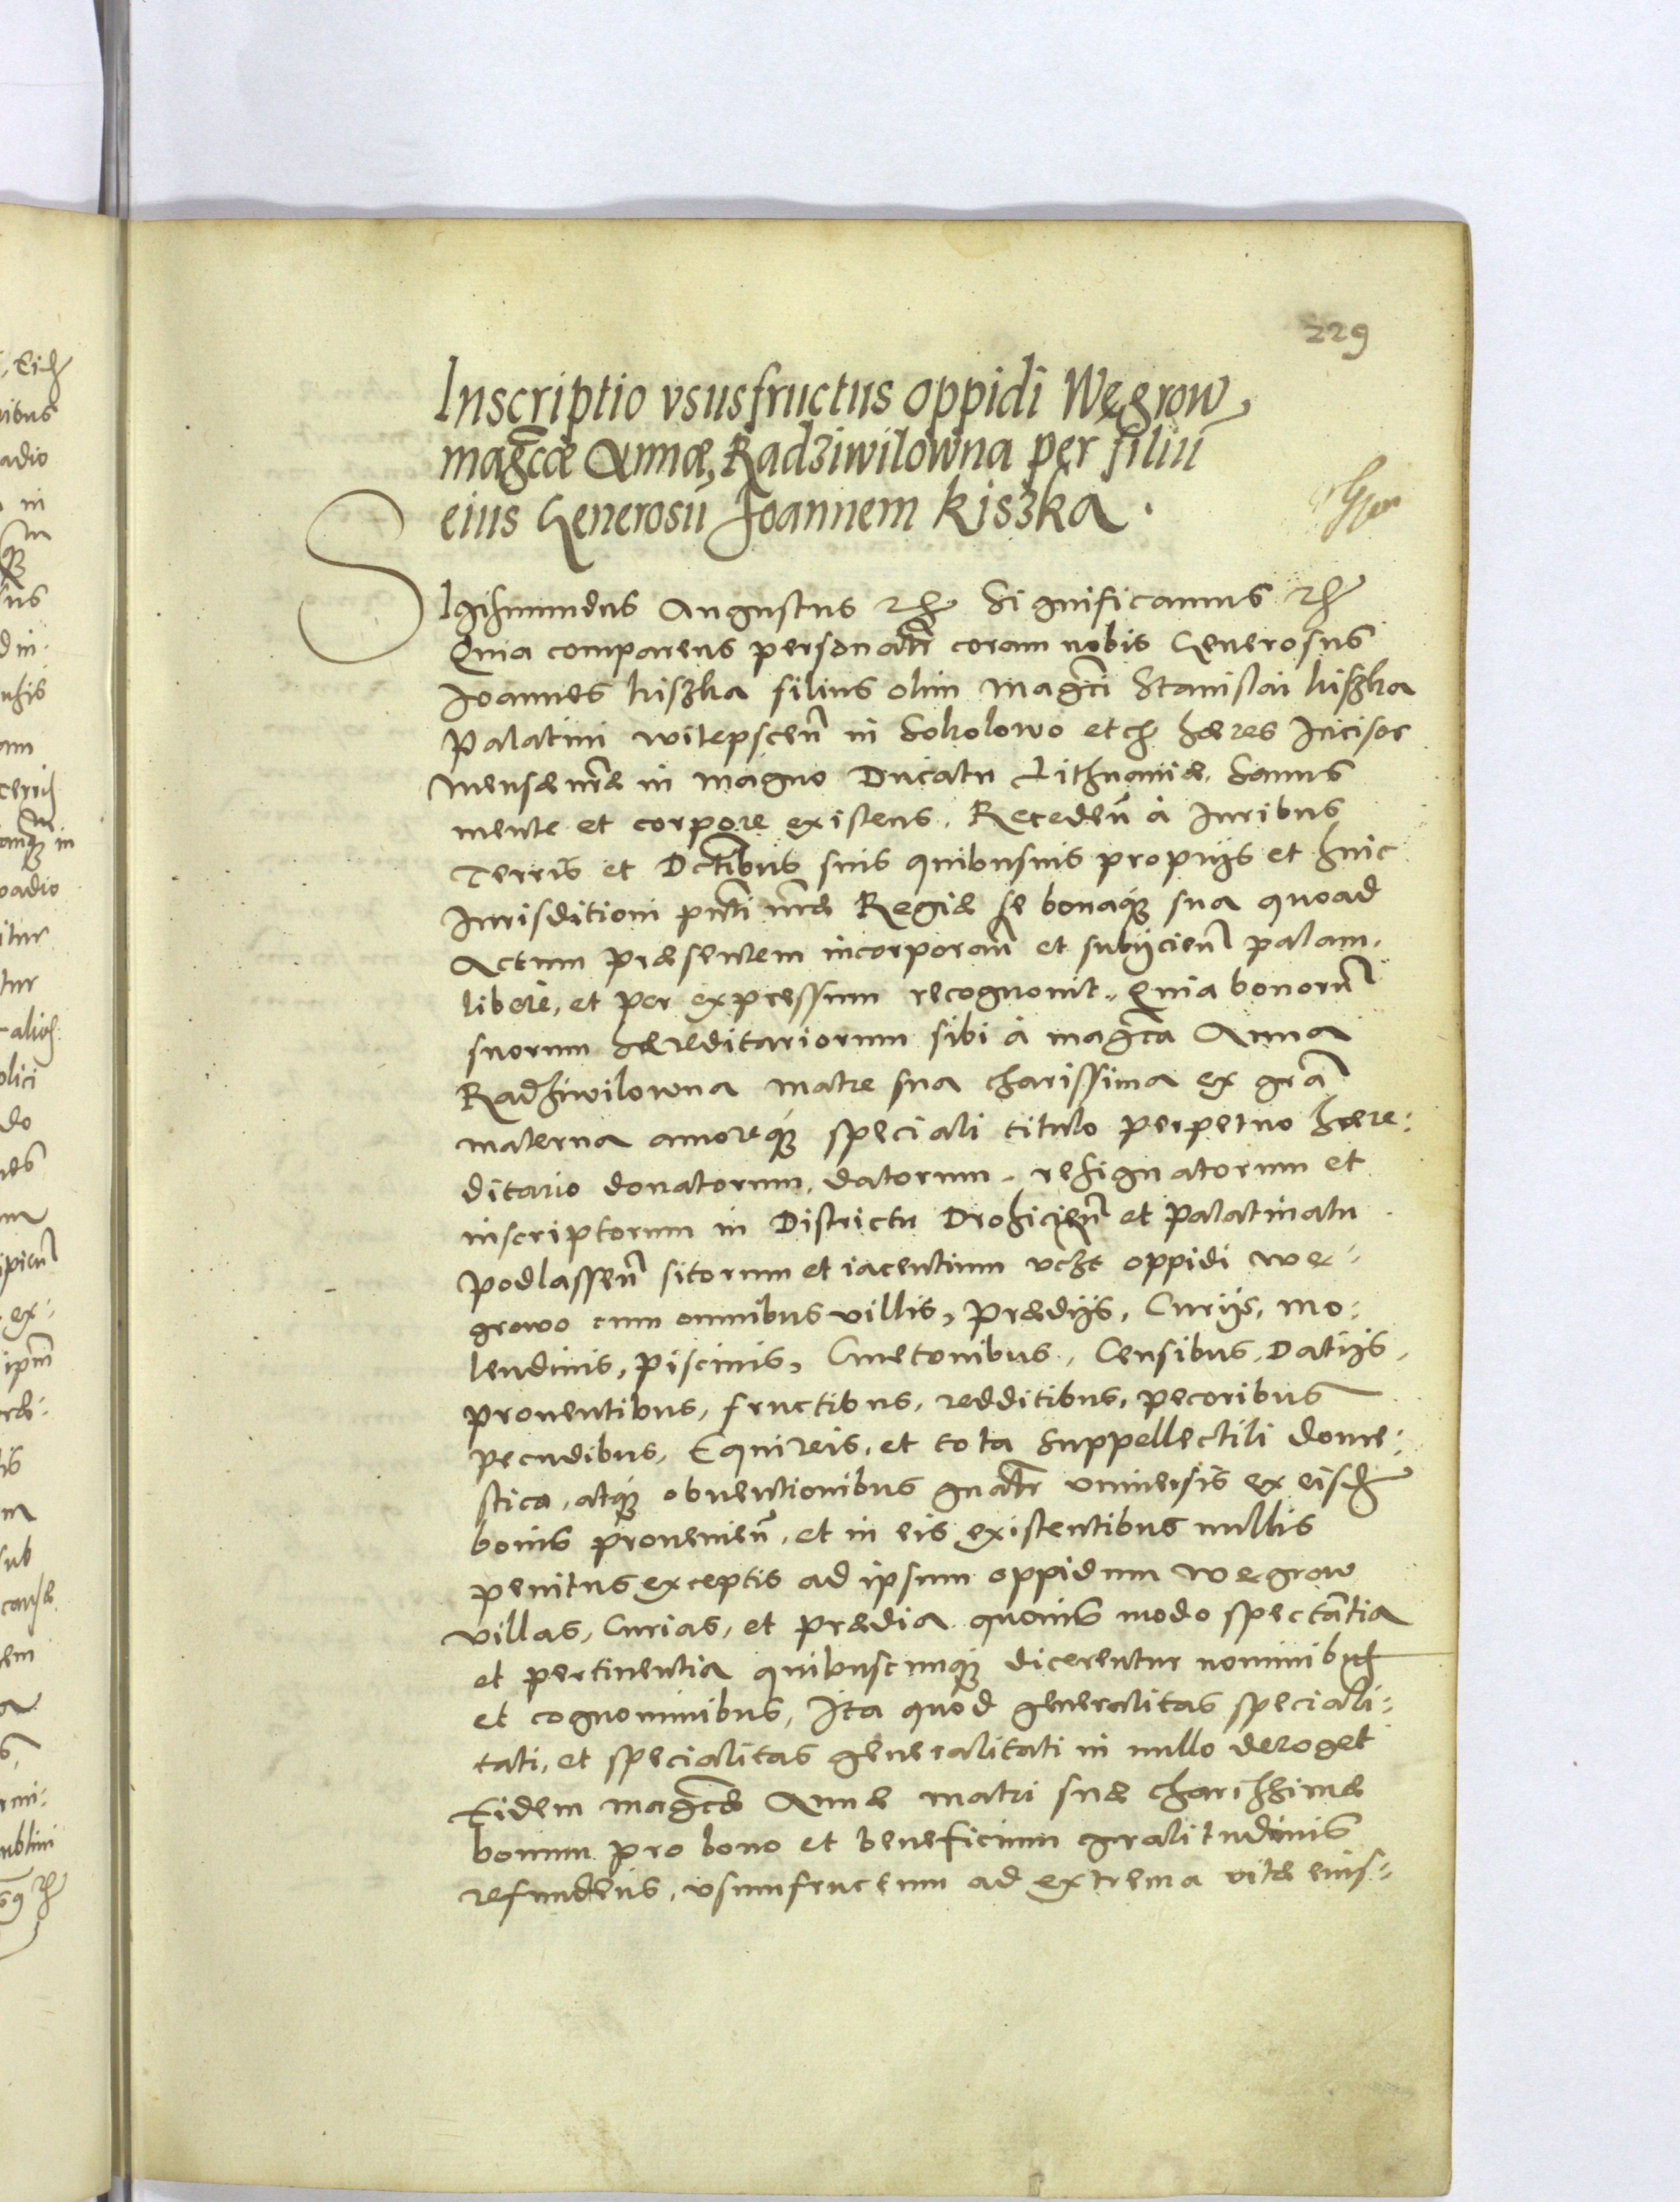 229
Inscriptio vsusfructus oppidi Węgrow
mag̃cæ Annæ, Radziwilowna per filiũ
eius Generosũ Joannem Kiszka.
SIgismundus Augustus etc Significamus etc
Quia comparens personalr̃ coram nobis Generosus
Joannes kiszka filius olim Mag̃ci Stanislai kiszka
Palatini witepsceñ in Sokolowo etc hæres Incisor
Mensæ nr̃æ in Magno Ducatu Lithuaniæ. Sanus
mente et corpore existens. Recedeñ à Iuribus
Terris et Dc̃tibus suis quibusuis proprijs et huic
Iurisditioni pñti nr̃æ Regiæ se bonaq́ue sua quoad
Actum præsentem incorporañ et subijcieñ palam.
libere, et per expressum recognouit. Quia bonorũ
suorum hæreditariorum sibi à mag̃ca Anna
Radziwilowna matre sua charissima ex gr̃a
materna amoreq́ue speciali titulo perpetuo hære:
ditario donatorum, datorum, resignatorum et
inscriptorum in Districtu Drohicieñ et Palatinatu
Podlasseñ sitorum et iacentium vczt oppidi we:
growo cum omnibus villis, Prædijs, Curijs, Mo:
lendinis, Piscinis, Cmetonibus, Censibus, Datijs,
prouentibus, fructibus, redditibus, pecoribus
pecudibus, Equireis, et tota Suppellectili dome:
stica, atq́ue obuentionibus gñalr̃ vniuersis ex eisd
bonis proueñieñ, et in eis existentibus nullis
penitus exceptis ad ipsum oppidum wegrow
villas, Curias, et prædia quouis modo spectãtia
et pertinentia quibuscunq́ue dicerentur nominibus
et cognominibus, Ita quod generalitas speciali:
tati, et specialitas generalitati in nullo deroget
Eidem mag̃cæ Annæ matri suæ charissimæ
bonum pro bono et beneficium gratitudinis
refundens, vsumfructum ad extrema vitæ eius: